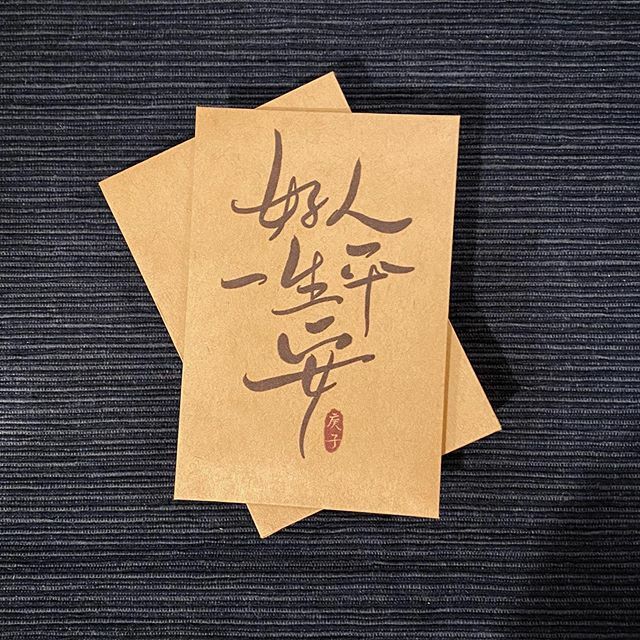 好人
一生平
安
庚子